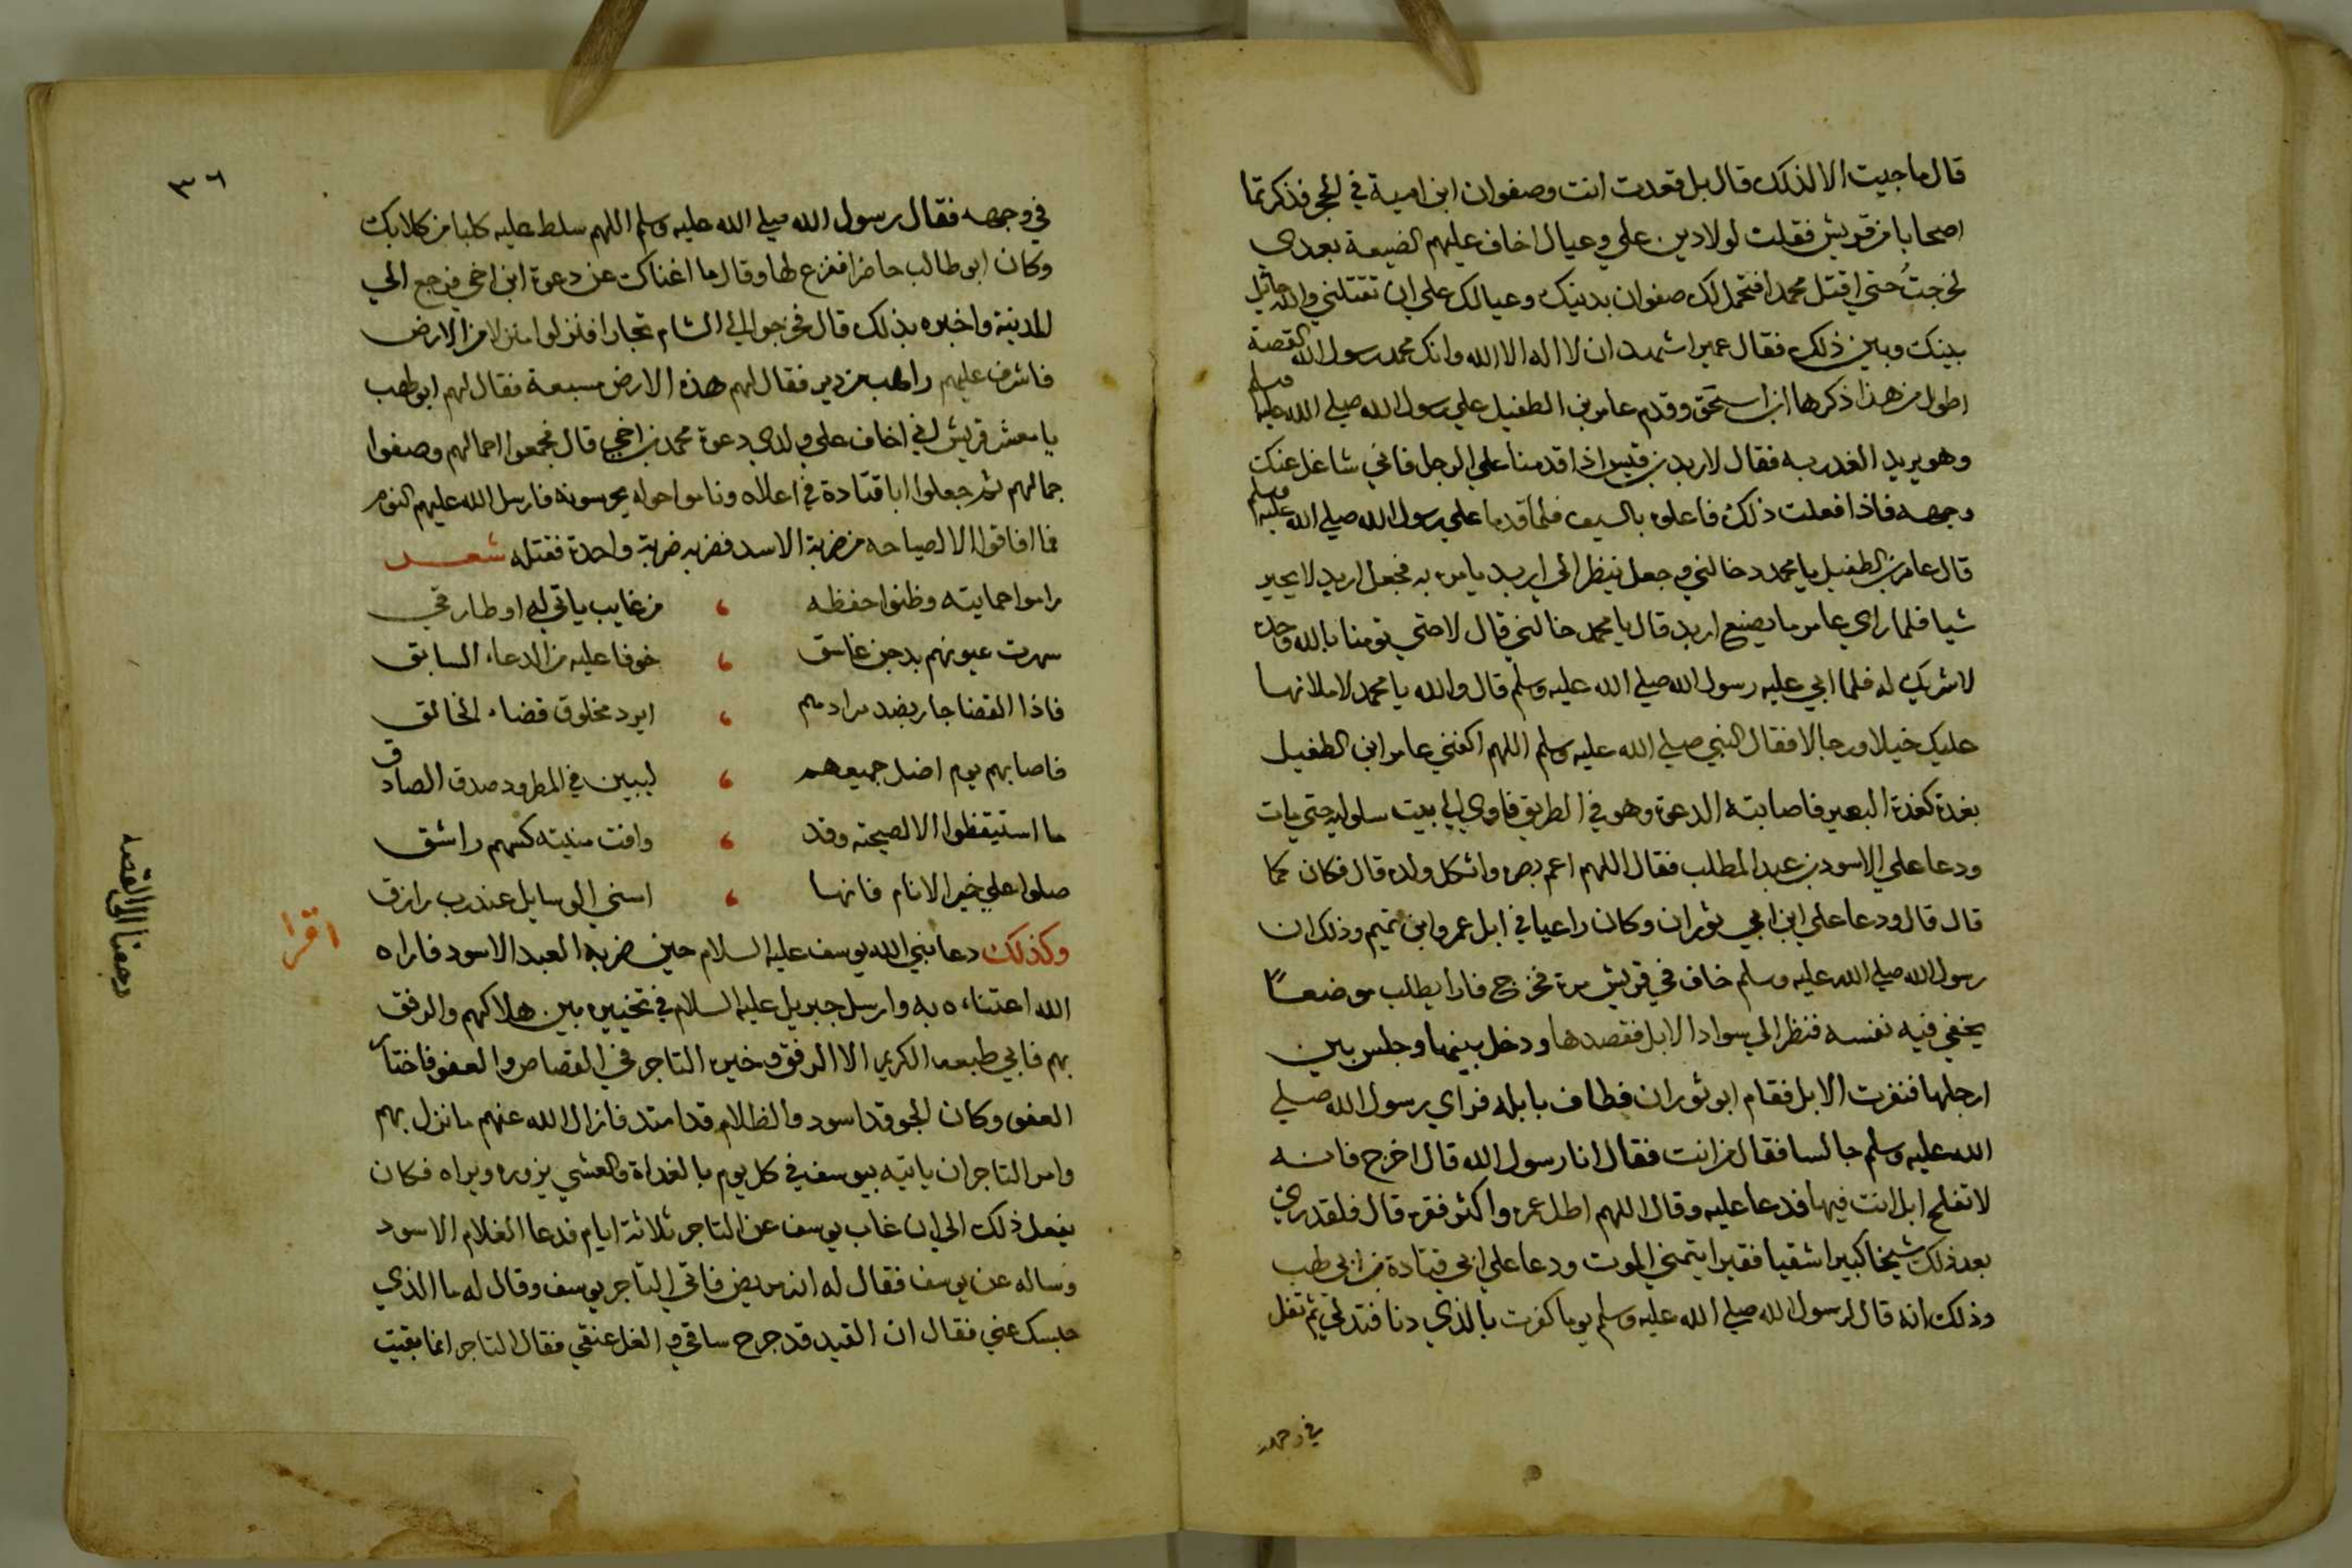 قال ما جيت الا لذلك قال بل قعدت انت وصفوان ابن امية في الحجر فذكرتما
اصحابا من قريش فقلت لولا دين علي وعيال اخاف عليهم الضيعة بعدي
لخرجتُ حتي اقتل محمدا فتحمل لك صفوان بدينك وعيالك علي ان تقتلني والله حائل
بينك وبين ذلك فقال عمير اشهد ان لا اله الا الله وانك محمد رسول الله القصة
اطول من هذا ذكرها ابن اسحق وقدم عامر بن الطفيل علي رسول الله صلي الله عليه وسلم
وهو يريد الغدر به فقال لاربد بن قيس اذا قدمنا علي الرجل فاني شاغل عنك
وجهه فاذا فعلت ذلك فاعله بالسيف فلما قدما علي رسول الله صلي الله عليه وسلم
قال عامر بن الطفيل يا محمد خالني وجعل ينظر الي اربد يامره به فجعل اربد لا يحير
شيا فلما راي عامر ما يصنع اربد قال يا محمد خالني قال لا حتي تومنا بالله وحده
لا شريك له فلما ابي عليه رسول الله صلي الله عليه وسلم قال والله يا محمد لاملانها
عليك خيلا ورجالا فقال النبي صلي الله عليه وسلم اللهم اكفني عامر ابن الطفيل
بغدة كغدة البعير فاصابته الدعوة وهو في الطريق فاوي الي بيت سلوليه حتي مات
ودعا علي الاسود بن عبد المطلب فقال اللهم اعم بصره واثكل ولده قال فكان كما
قال قال ودعا علي ابن ابي ثوران وكان راعيا في ابل عمرو ابن تميم وذلك ان
رسول الله صلي الله عليه وسلم خاف في قريش مرة فخرج فارا يطلب موضعًا
يخفي فيه نفسه فنظر الي سواد الابل فقصدها ودخل بينها وجلس بين
ارجلها فنفرت الابل فقام ابو ثوران فطاف بابله فراي رسول الله صلي
الله عليه وسلم جالسا فقال من انت فقال انا رسول الله قال اخرج فانه
لا تفلح ابل انت فيها فدعا عليه وقال اللهم اطل عمره واكثر فقره قال فلقد ري
بعد ذلك شيخا كبيرا شقيا فقيرا يتمني الموت ودعا علي ابي قتادة بن ابي طهب
وذلك انه قال لرسول الله صلي الله عليه وسلم يوما كفرت بالذي دنا فتدلي ثم تفل
في وجهه
٣٦
في وجهه فقال رسول الله صلي الله عليه وسلم اللهم سلط عليه كلبا من كلابك
وكان ابو طالب حاضرا ففزع لها وقال ما اغناك عن دعوة ابن اخي فرجع الي
المدينة واخبره بذلك قال فخرجوا الي الشام تجارا فنزلوا منزلا من الارض
فاشرف عليهم راهب من دير فقال لهم هذه الارض مسبعة فقال لهم ابو طهب
يا معشر قريش اني اخاف علي ولدي دعوة محمد بن اخي قال فجمعوا احمالهم وصفوا
جمالهم ثم جعلوا ابا قتادة في اعلاه وناموا حوله يحرسونه فارسل الله عليهم النوم
فما افاقوا الا لصياحه من ضربة الاسد فضربه ضربة واحدة فقتله شعـــر
راموا حمايته وظنوا حفظه ، من غايب ياتي له او طارقي
سهرت عيونهم بدجن غاسق ، خوفا عليه من الدعاء السابق
فاذا القضا جار بضد مرادهم ، ايرد مخلوق قضاء الخالق
فاصابهم يوم اضل جميعهم ، ليبين في المطرود صدق الصادق
ما استيقظوا الا لصيحته وقد ، وافت منيته كسهم راشق
صلوا علي خير الانام فانها ، اسني الوسايل عند رب رازق
وكذلك دعا نبي الله يوسف عليه السلام حين ضربه العبد الاسود فاراه
اقرا
الله اعتناءه به وارسل جبريل عليه السلام في تخييره بين هلاكهم والرفق
بهم فابي طبعه الكريم الا الرفق وخيره التاجر في القصاص والعفو فاختار
العفو وكان الجو قد اسود والظلام قد امتد فازال الله عنهم ما نزل بهم
وامر التاجر ان ياتيه بيوسف في كل يوم بالغداة والعشي يزوره ويراه فكان
يفعل ذلك الي ان غاب يوسف عن التاجر ثلاثة ايام فدعا الغلام الاسود
وساله عن يوسف فقال له انه مريض فاتي التاجر يوسف وقال له ما الذي
حبسك عني فقال ان القيد قد جرح ساقي والغل عنقي فقال التاجر انما بقيت
رجعنا الي القصه